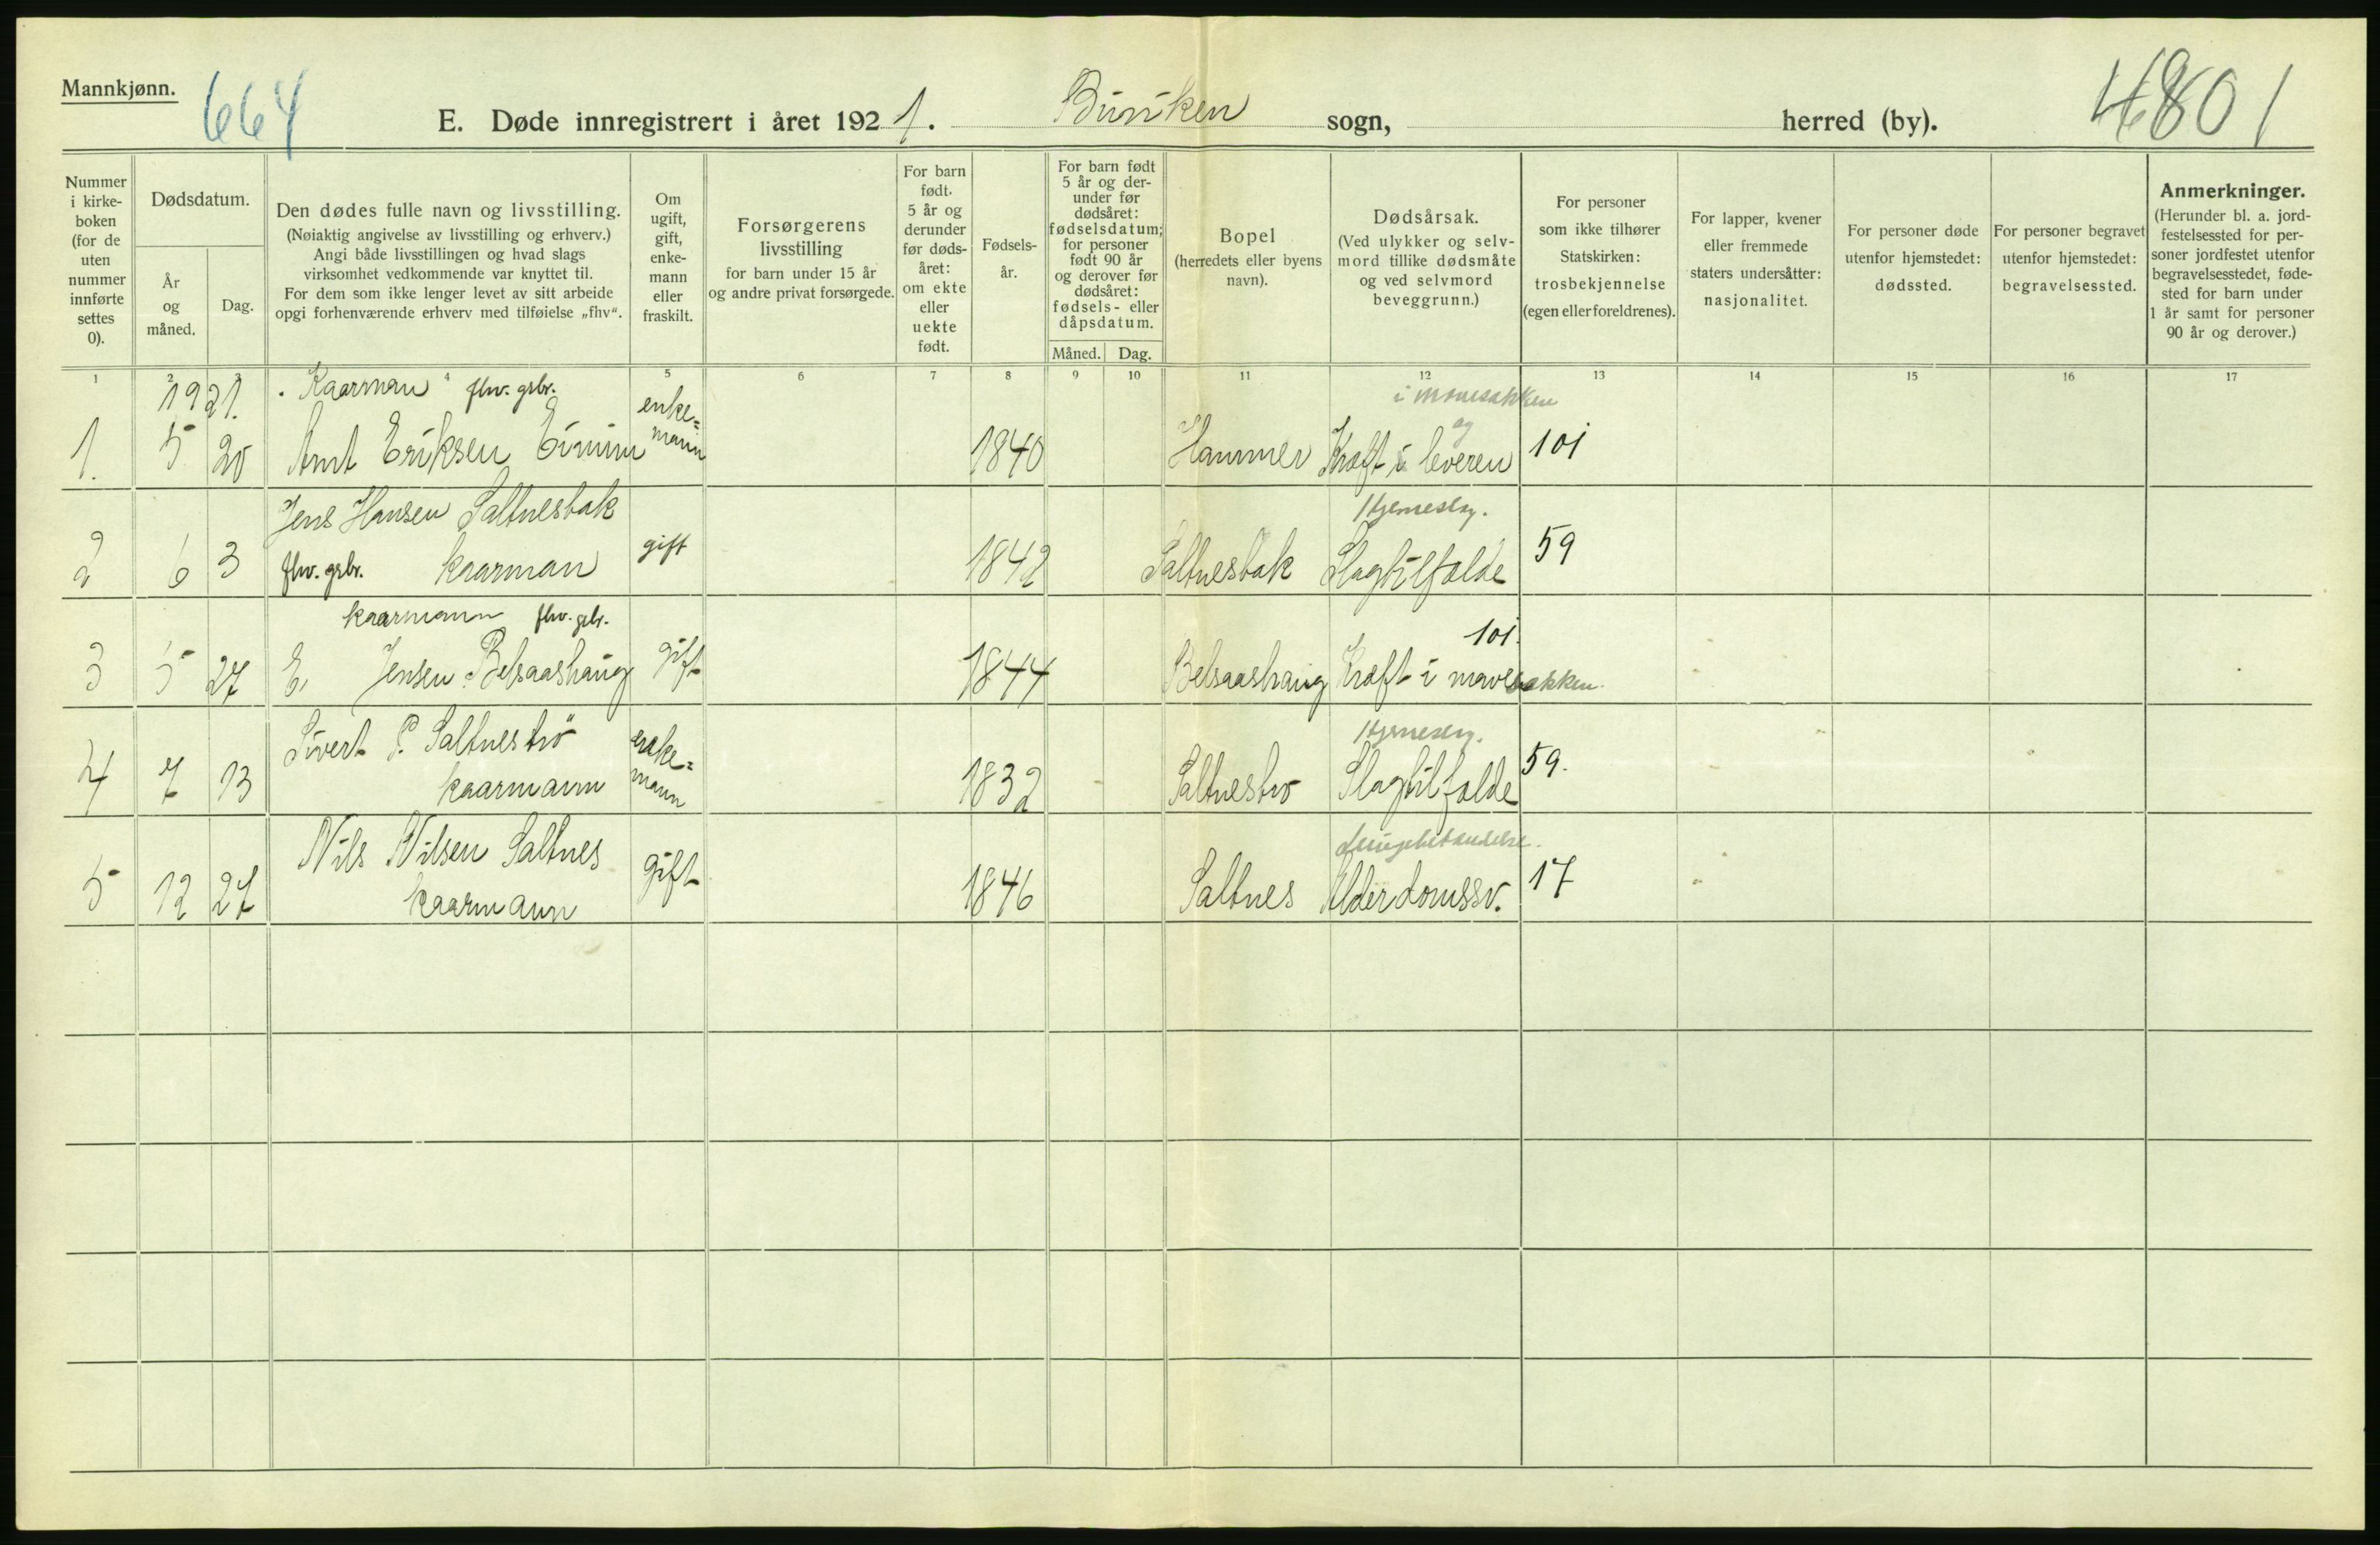 Mannkjønn.
664
E. Døde innregistrert i året 1921. Buviken sogn, herred (by).
4801
Nummer i kirkeboken (for de uten nummer innførte settes 0).
Dødsdatum.
År og måned.
Dag.
Den dødes fulle navn og livsstilling.
(Nøiaktig angivelse av livsstilling og erhverv.)
Angi både livsstillingen og hvad slags
virksomhet vedkommende var knyttet til.
For dem som ikke lenger levet av sitt arbeide
opgi forhenværende erhverv med tilføielse „fhv“.
Om ugift, gift, enkemann eller fraskilt.
Forsørgerens
livsstilling
for barn under 15 år
og andre privat forsørgede.
For barn født 5 år og derunder før dødsåret: om ekte eller uekte født.
Fødselsår.
For barn født 5 år og derunder før dødsåret: fødselsdatum; for personer født 90 år og derover før dødsåret: fødsels- eller dåpsdatum.
Måned. Dag.
Bopel
(herredets eller byens
navn).
Dødsårsak.
(Ved ulykker og selv-
mord tillike dødsmåte
og ved selvmord
beveggrunn.)
For personer
som ikke tilhører
Statskirken:
trosbekjennelse
(egen eller foreldrenes).
For lapper, kvener
eller fremmede
staters undersåtter:
nasjonalitet.
For personer døde
utenfor hjemstedet:
dødssted.
For personer begravet
utenfor hjemstedet:
begravelsessted.
Anmerkninger.
(Herunder bl. a. jord-
festelsessted for per-
soner jordfestet utenfor
begravelsesstedet, føde-
sted for barn under
1 år samt for personer
90 år og derover.)
1 2 3 4 5 6 7 8 9 10 11 12 13 14 15 16 17
1921. Kaarman fhv. grbr. enke= i mavesækken
og
1. 5 20 Arnt Eriksen mann 1840 Hammer Kræft i leveren 101
Jens Hansen Saltnesbak Hjerneslag.
2 6 3 fhv. grbr. kaarman gift 1842 Saltnesbak Slagtilfælde 59
kaarmann fhv. grbr. 101.
3 5 27 E. Jensen Belsaashaug gift 1844 Belsaashaug Kræft i mavesækken.
Sivert P. Saltnestrø enke= Hjerneslag.
4 7 13 kaarmann mann 1832 Saltnestrø Slagtilfælde 59.
Nils Nilsen Saltnes
5 12 27 kaarmann gift 1846 Saltnes Alderdomssv. 17